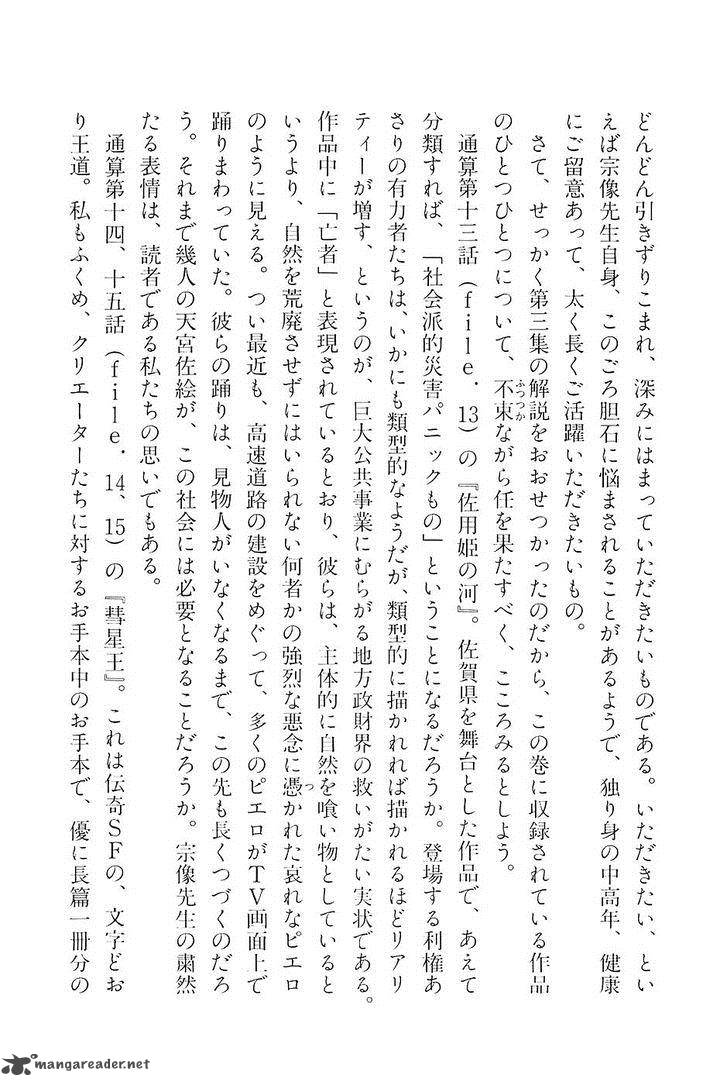 どんどん引きずりこまれ、深みにはまっていただきたいものである。いただきたい、とい
えば宗像先生自身、このごろ胆石に悩まされることがあるようで、独り身の中高年、健康
にご留意あって、太く長くご活躍いただきたいもの。
さて、せっかく第三集の解説をおおせつかったのだから、この巻に収録されている作品
のひとつひとつについて、不束ながら任を果たすべく、こころみるとしよう。
ふつつか
通算第十三話(file.13)の『佐用姫の河』。佐賀県を舞台とした作品で、あえて
分類すれば、「社会派的災害パニックもの」ということになるだろうか。登場する利権あ
さりの有力者たちは、いかにも類型的なようだが、類型的に描かれれば描かれるほどリアリ
ティーが増す、というのが、巨大公共事業にむらがる地方政財界の救いがたい実状である。
作品中に「亡者」と表現されているとおり、彼らは、主体的に自然を喰い物としていると
いうより、自然を荒廃させずにはいられない何者かの強烈な悪念に憑かれた哀れなピエロ
つ
のように見える。つい最近も、高速道路の建設をめぐって、多くのピエロがTV画面上で
踊りまわっていた。彼らの踊りは、見物人がいなくなるまで、この先も長くつづくのだろ
う。それまで幾人の天宮佐絵が、この社会には必要となることだろうか。宗像先生の粛然
たる表情は、読者である私たちの思いでもある。
通算第十四、十五話(file.14、15)の『彗星王』。これは伝奇SFの、文字どお
り王道。私もふくめ、クリエーターたちに対するお手本中のお手本で、優に長篇一冊分の
mangareader.net